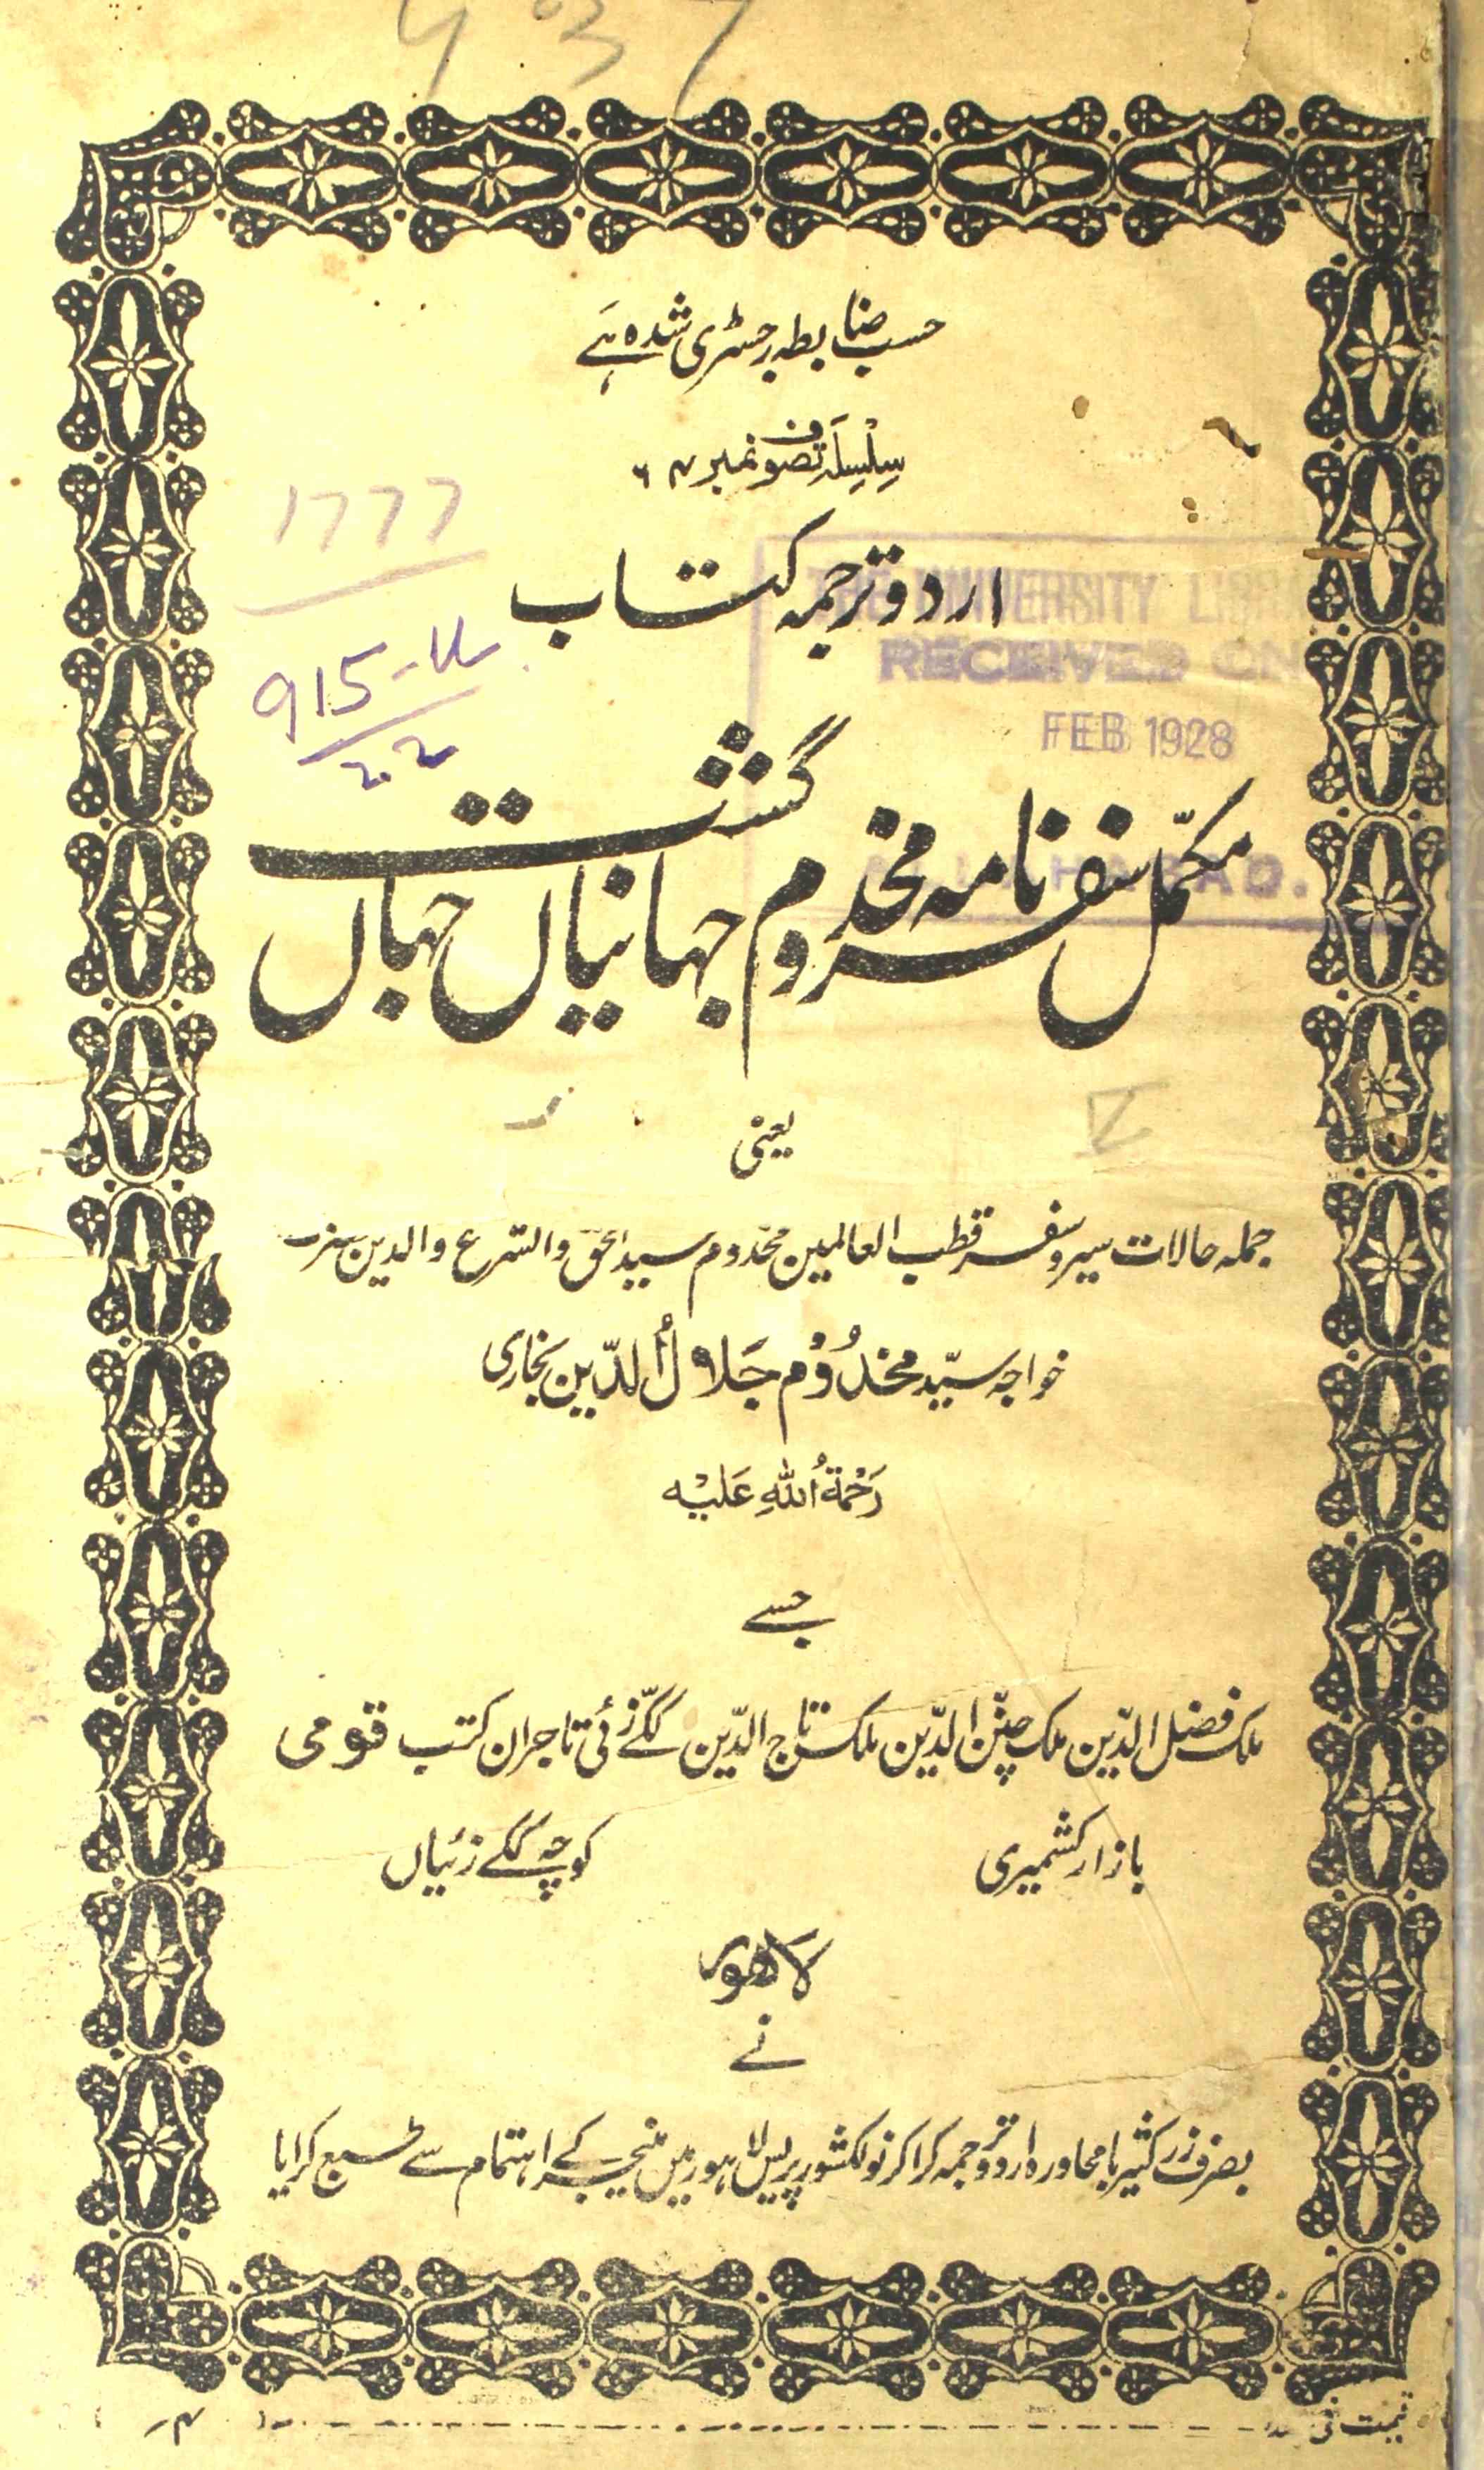 637
حسب ضابطہ رجسٹری شدہ ہے
سلسلہ تصوف نمبر ۶۴
1777
اردو ترجمہ کتاب
THE UNIVERSITY
RECEIVED ON
FEB 1928
ALLAHABAD.
915
مکمّل سفرنامہ مخدوم جہانیاں جہاں گشت
یعنی
جملہ حالات سیر و سفر قطب العالمین مخدوم سید الحق والشرع والدین حضرت
خواجہ سیّد مخدُوْم جَلالُ الدّین بخاری
رَحْمۃُ اللہِ عَلَیْہ
جسے
ملک فضل الدّین ملک چنن الدّین ملک تاج الدّین ککّے زئی تاجران کتب قومی
بازار کشمیری کوچہ ککے زئیاں
لاھور
نے
بصرف زر کثیر با محاورہ اردو ترجمہ کرا کر نولکشور پریس لاہور میں منیجر کے اہتمام سے طبع کرایا
قیمت فی